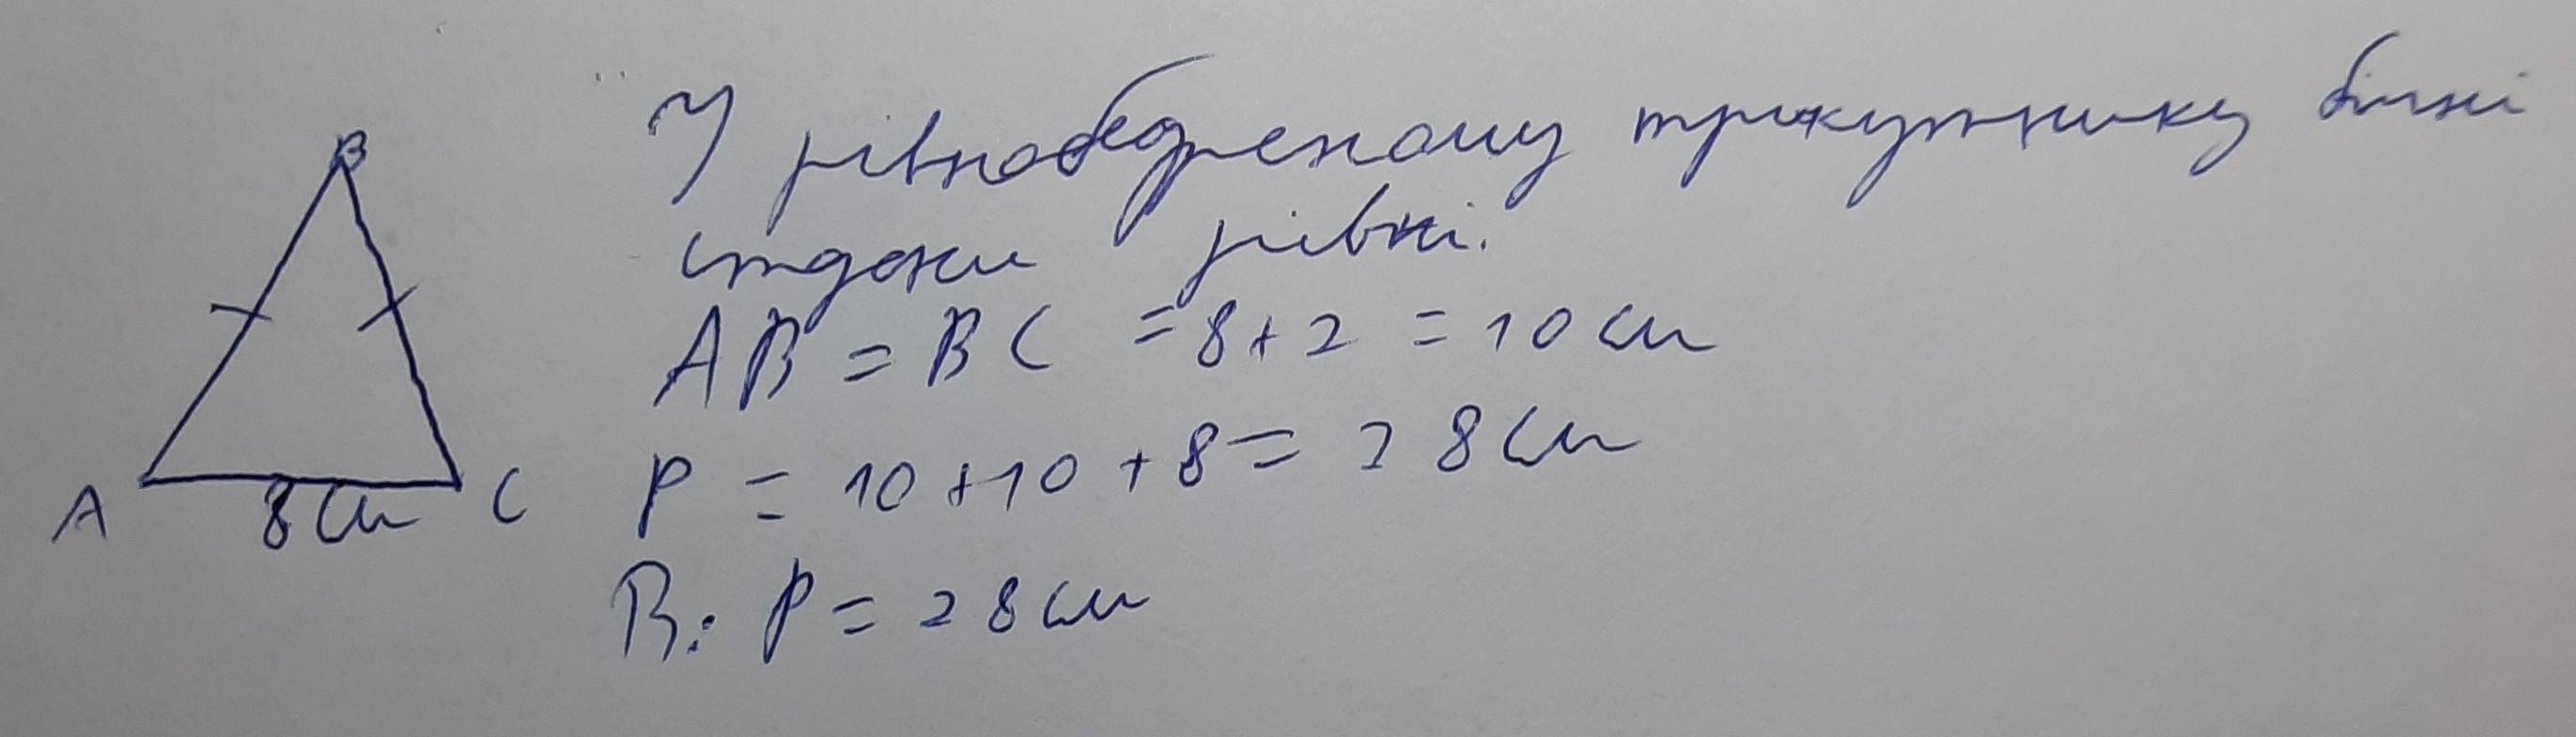 У рівнобедреному трикутнику бічні
сторони рівні.
AB = BC = 8 + 2 = 10 см
P = 10 + 10 + 8 = 28 см
В: P = 28 см
B
A 8 см C